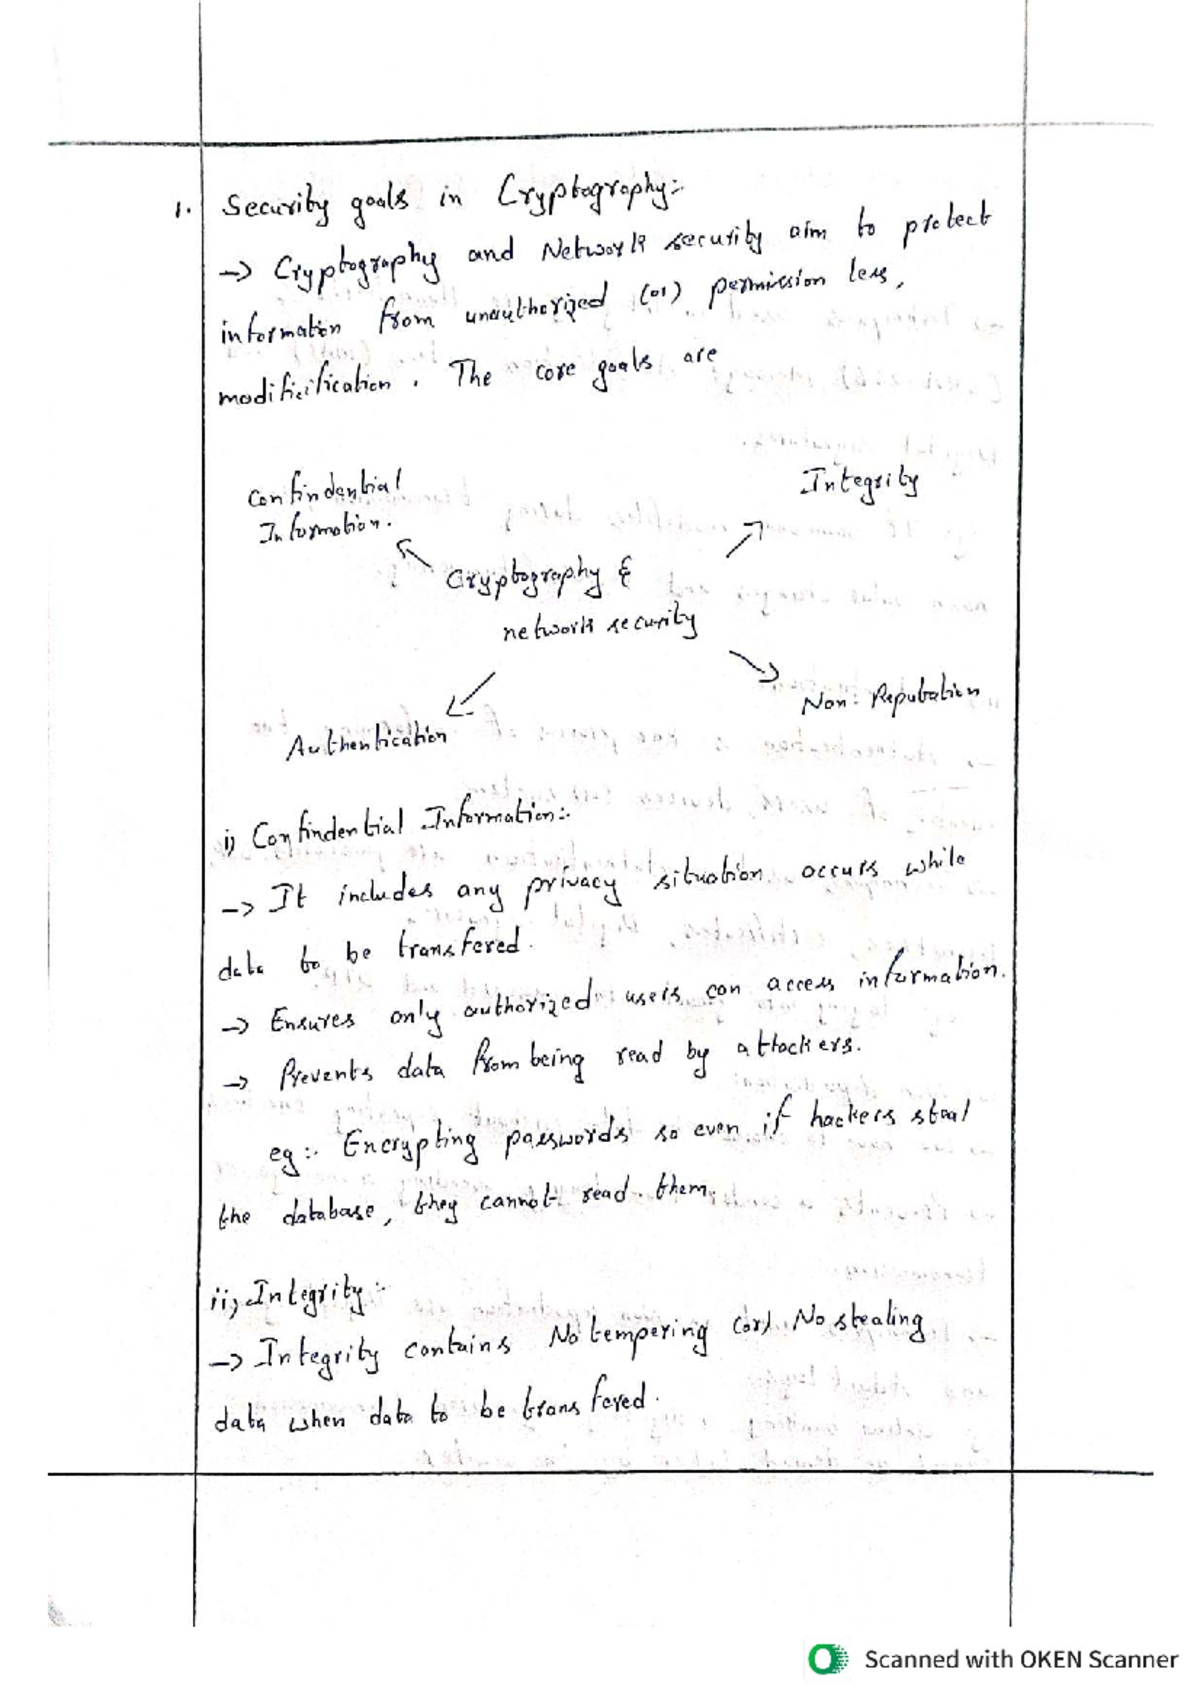 1. Security goals in Cryptography:-
-> Cryptography and Network security aim to protect
information from unauthorized (or) permission less,
modificification. The core goals are
Confindential
Information.
Integrity
Cryptography &
network security
Authentication
Non-Reputation
i) Confindential Information:-
-> It includes any privacy situation occurs while
data to be transfered.
-> Ensures only authorized users can access information.
-> Prevents data from being read by attackers.
eg:- Encrypting passwords so even if hackers steal
the database, they cannot read them.
ii) Integrity:-
-> Integrity contains No tempering (or) No stealing
data when data to be transfered.
Scanned with OKEN Scanner